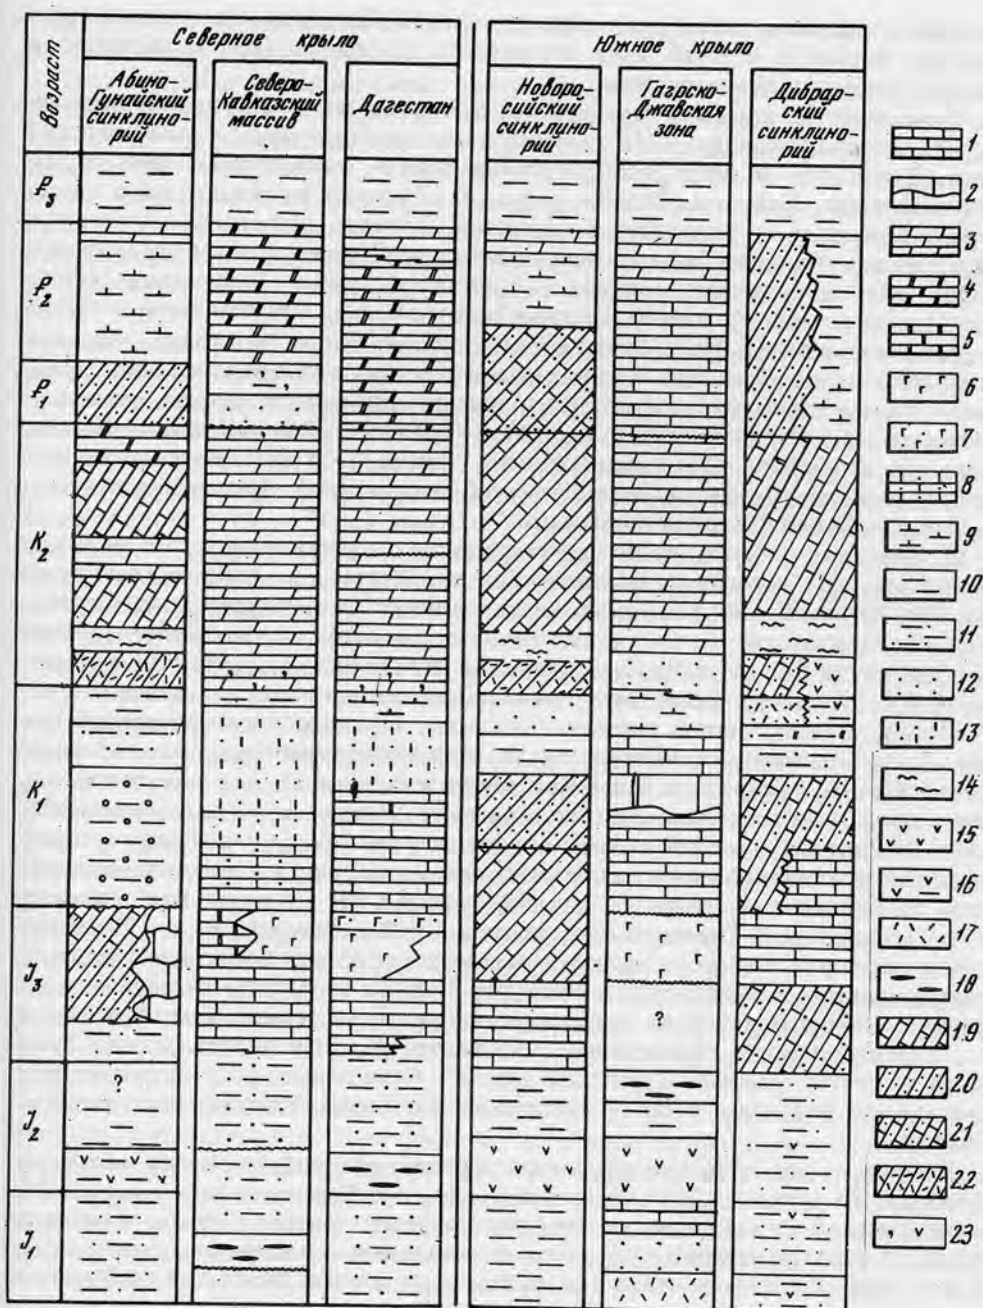 Возраст
Северное крыло
Южное крыло
Абино-
Гунайский
синклино-
рий
Северо-
Кавказский
массив
Дагестан
Новорос-
сийский
синклино-
рий
Гагрско-
Джавская
зона
Дибрар-
ский
синклино-
рий
P₃
P₂
P₁
K₂
K₁
J₃
J₂
J₁
?
?
1
2
3
4
5
6
7
8
9
10
11
12
13
14
15
16
17
18
19
20
21
22
23